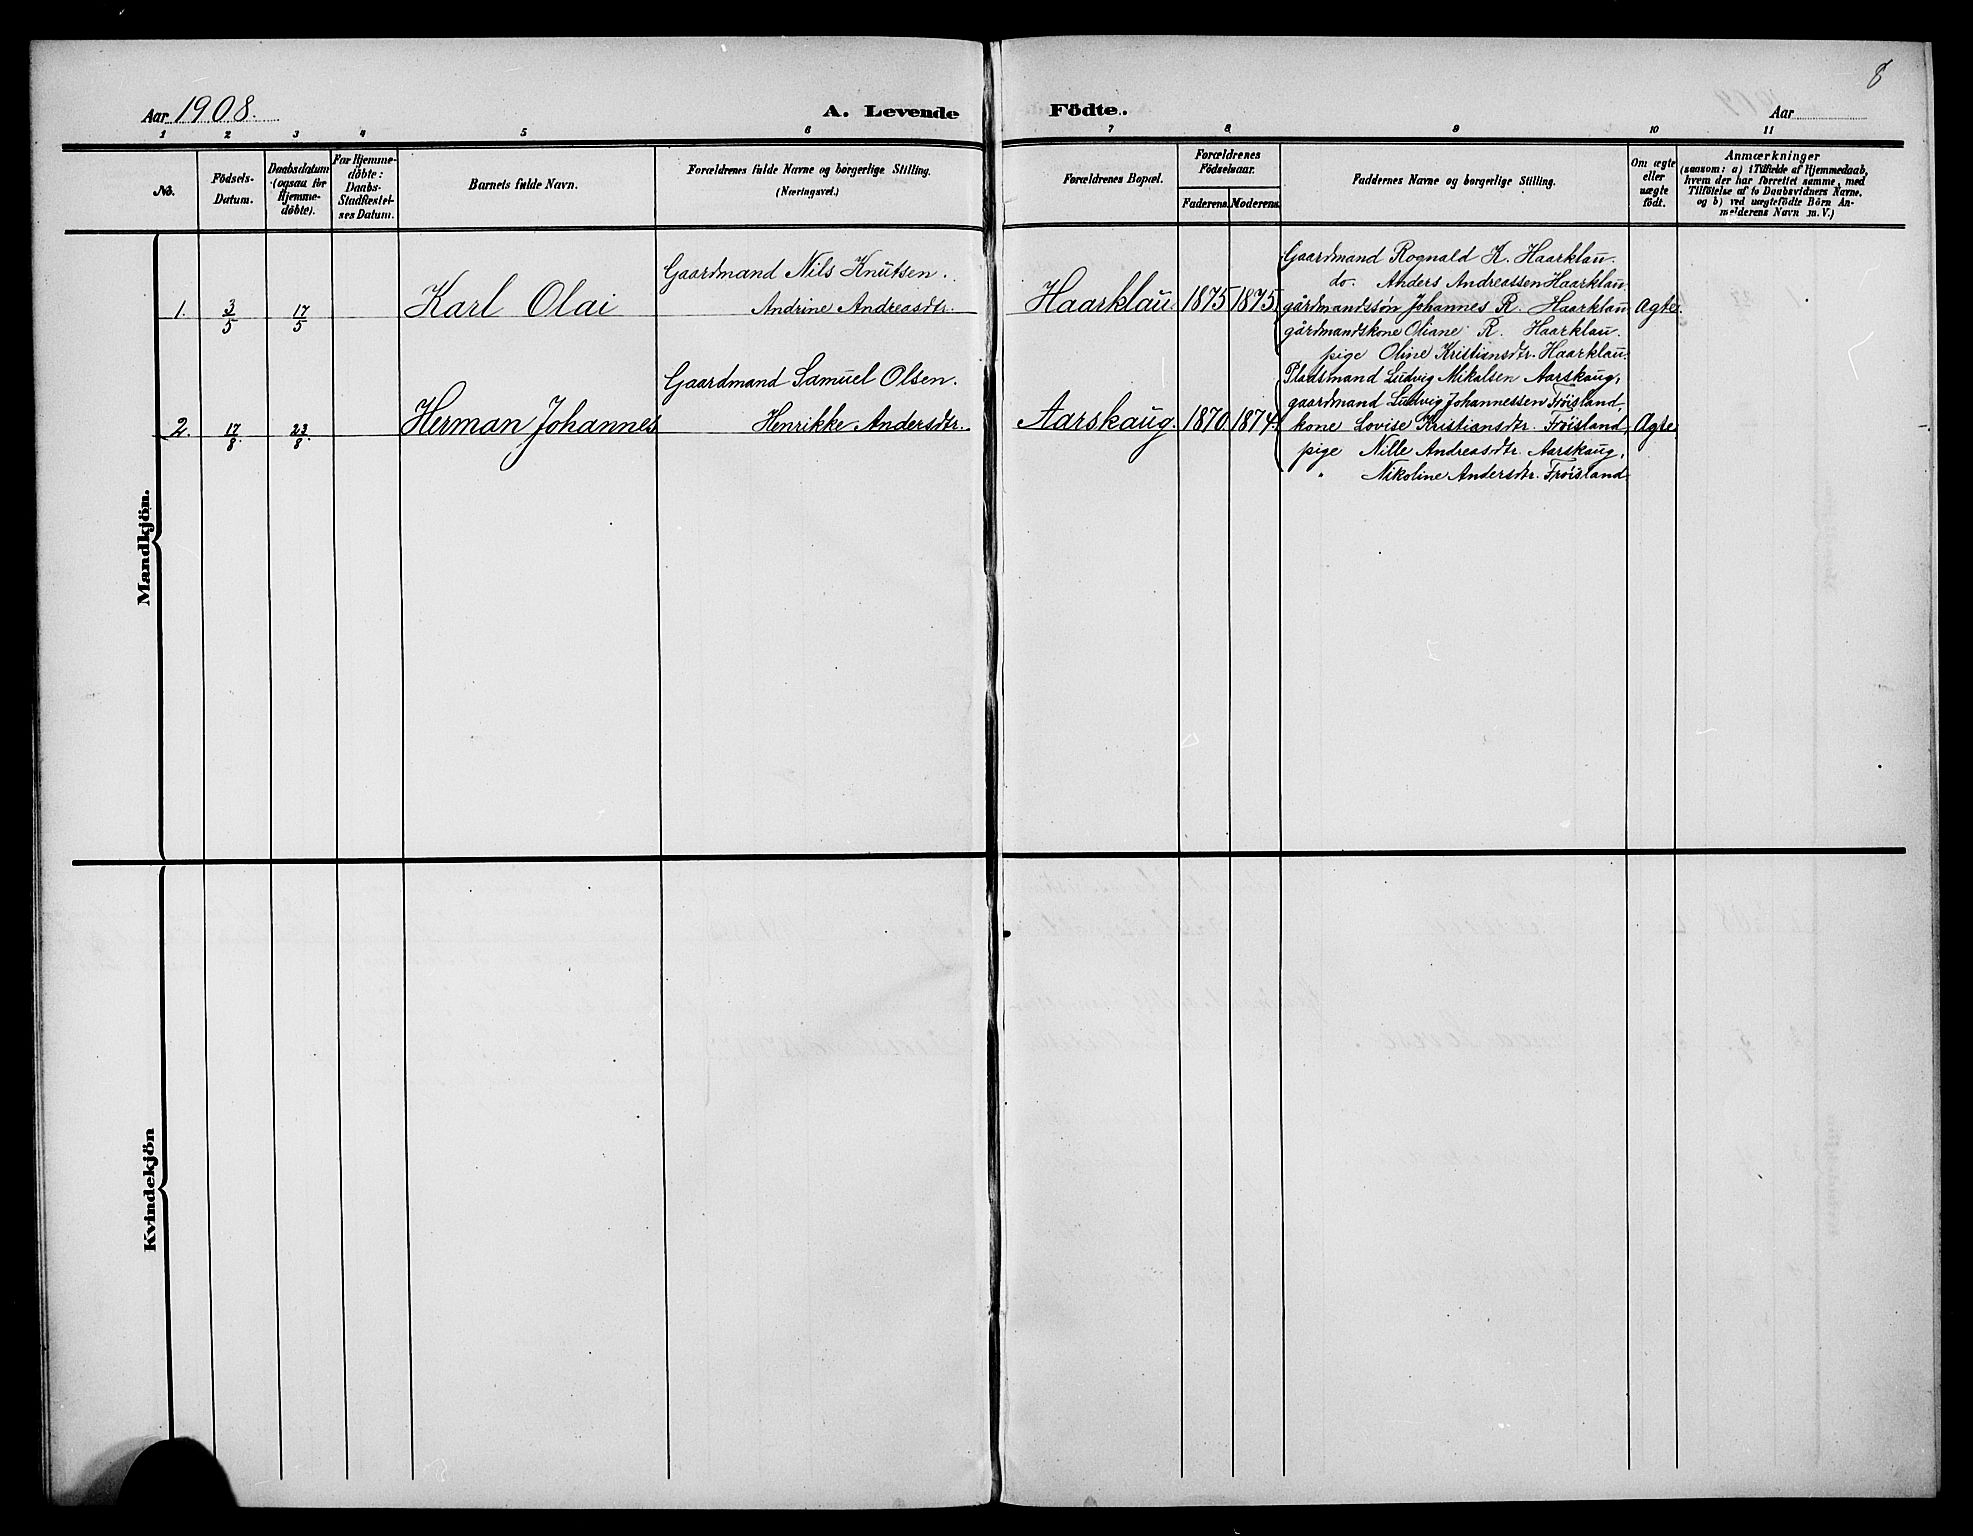 8
Aar 1908. A. Levende Födte. Aar
1 2 3 4 5 6 7 8 9 10 11
No.
Födsels-
Datum.
Daabsdatum
(ogsaa for
Hjemme-
döbte).
For Hjemme-
döbte:
Daabs-
Stadfestel-
ses Datum.
Barnets fulde Navn.
Forældrenes fulde Navne og borgerlige Stilling.
(Næringsvei.)
Forældrenes Bopæl.
Forældrenes
Födselsaar.
Faderens. Moderens.
Faddernes Navne og borgerlige Stilling.
Om ægte
eller
uægte
födt.
Anmærkninger
(saasom: a) i Tilfælde af Hjemmedaab,
hvem der har forrettet samme, med
Tilföielse af to Daabsvidners Navne.
og b) ved uægtefödte Börn An-
melderens Navn m. V.)
Mandkjön.
1. 3/5 17/5 Karl Olai
Gaardmand Nils Knutsen.
Andrine Andreasdtr.
Haarklau. 1875 1875.
Gaardmand Rognald K. Haarklau.
do. Anders Andreassen Haarklau.
gårdmandssøn Johannes R. Haarklau
gårdmandskone Oliane R. Haarklau.
pige Oline Kristiansdtr. Haarklau.
Ægte.
2. 17/8 23/8 Herman Johannes
Gaardmand Samuel Olsen.
Henrikke Andersdtr.
Aarskaug. 1870 1874.
Pladsmand Ludvig Mikalsen Aarskaug,
gaardmand Ludvig Johannessen Frøisland,
kone Lovise Kristiansdtr. Frøisland,
pige Nille Andreasdtr. Aarskaug,
" Nikoline Andersdtr. Frøisland
Ægte.
Kvindekjön